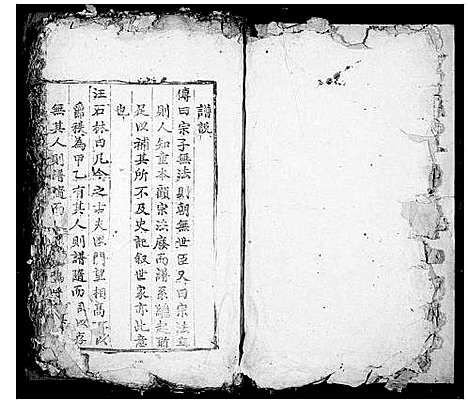 譜說
傳曰宗子無法則朝無世臣又曰宗法立
則人知重本顧宗法廢而譜系雖起猶
足以補其所不及史記叙世家亦此意
也
汪石林曰凡今之士夫以門望相高
爵秩為甲乙有其人則譜隨而
無其人則譜隨而